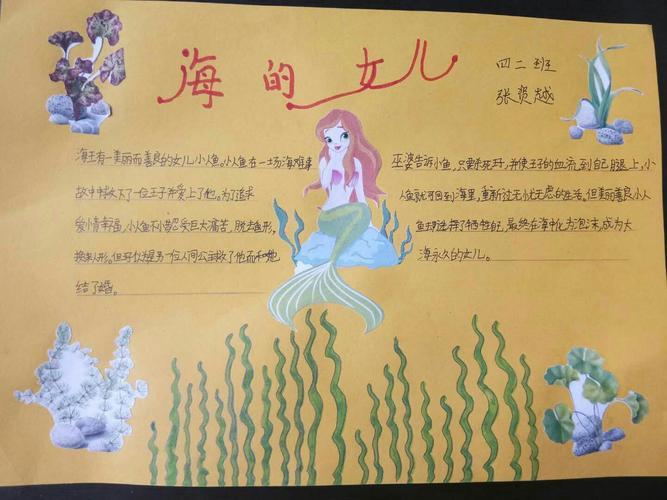 海的女儿
四二班
张贺越
海王有一美丽而善良的女儿小人鱼。小人鱼在一场海难事
故中救下了一位王子并爱上了他。为了追求
爱情幸福,小人鱼不惜忍受巨大痛苦,脱去鱼形,
换来人形。但王子误以为另一位人间公主救了他而和她
结了婚。
巫婆告诉小鱼,只要杀死王子,并使王子的血流到自己腿上,小
人鱼就可回到海里,重新过无忧无虑的生活。但美丽善良小人
鱼选择了牺牲自己,最终在海中化为泡沫,成为大
海永久的女儿。